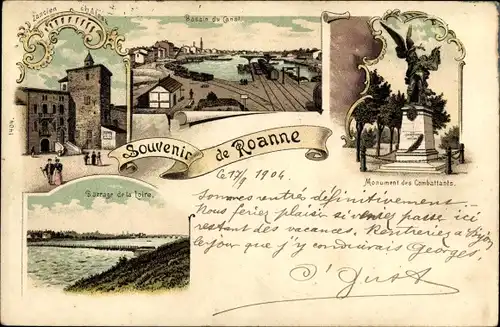 Ancien Château
Bassin du Canal.
1404.
Souvenir de Roanne
Monument des Combattants.
Ce 17/9 1904
Barrage de la Loire.
Sommes rentré définitivement.
Nous feriez plaisir si venez passer ici
restant des vacances. Rentreriez à Dijon
le jour que j'y conduirais Georges.